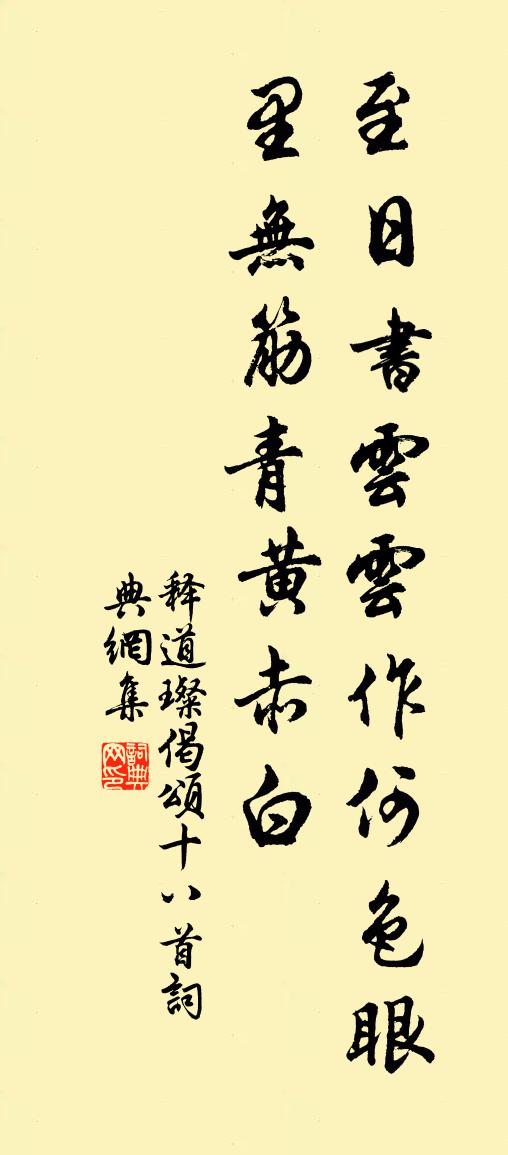 至日書雲雲作何色眼
里無筋青黄赤白
释道璨偈頌十八首詞
典網集
詞典
网印